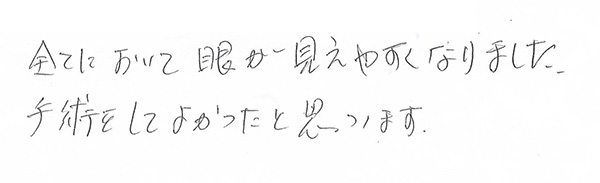 全てにおいて眼が見えやすくなりました。
手術をしてよかったと思います.